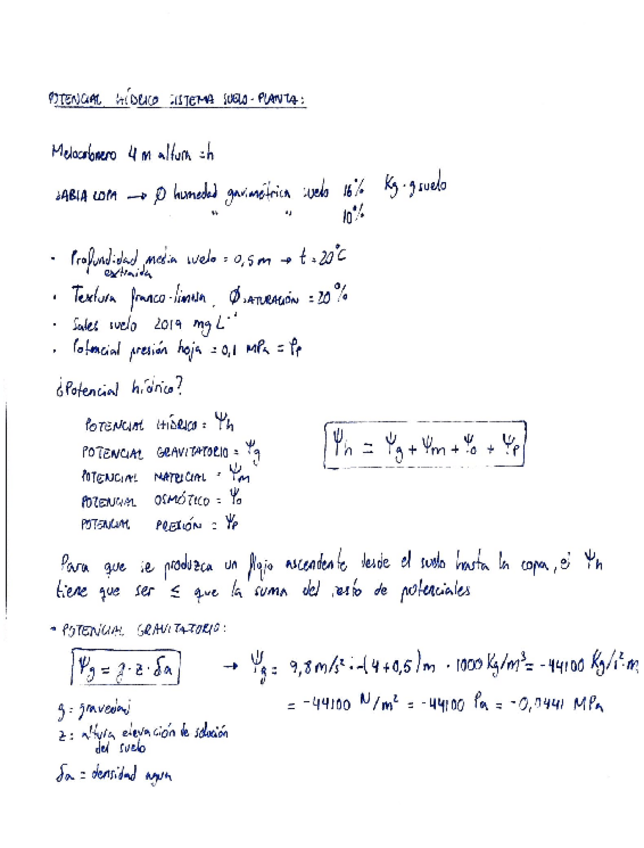 POTENCIAL HÍDRICO SISTEMA SUELO-PLANTA:
Melocotonero 4 m altura = h
SABIA COPA → Ø humedad gravimétrica suelo 16% Kg · g suelo
" " 10%
· Profundidad media suelo = 0,5 m → t = 20°C
extraida
· Textura franco-limosa, Ø SATURACIÓN = 20%
· Sales suelo 2019 mg L⁻¹
· Potencial presión hoja = 0,1 MPa = Pp
¿Potencial hídrico?
POTENCIAL HÍDRICO = Ψh
POTENCIAL GRAVITATORIO = Ψg
POTENCIAL MATRICIAL = Ψm
POTENCIAL OSMÓTICO = Ψo
POTENCIAL PRESIÓN = Ψp
Ψh = Ψg + Ψm + Ψo + Ψp
Para que se produzca un flujo ascendente desde el suelo hasta la copa, el Ψh
tiene que ser ≤ que la suma del resto de potenciales
- POTENCIAL GRAVITATORIO:
Ψg = g · z · δa → Ψg = 9,8 m/s² · -(4+0,5) m · 1000 Kg/m³ = -44100 Kg/s²·m
= -44100 N/m² = -44100 Pa = -0,0441 MPa
g: gravedad
z: altura elevación de solución
del suelo
δa = densidad agua